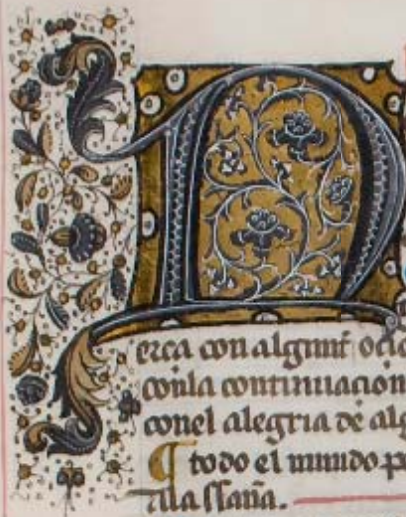 N
erca con algunt ocio
con la continuacion
con el alegria de alg
¶ todo el mundo pe
a la ssaña.